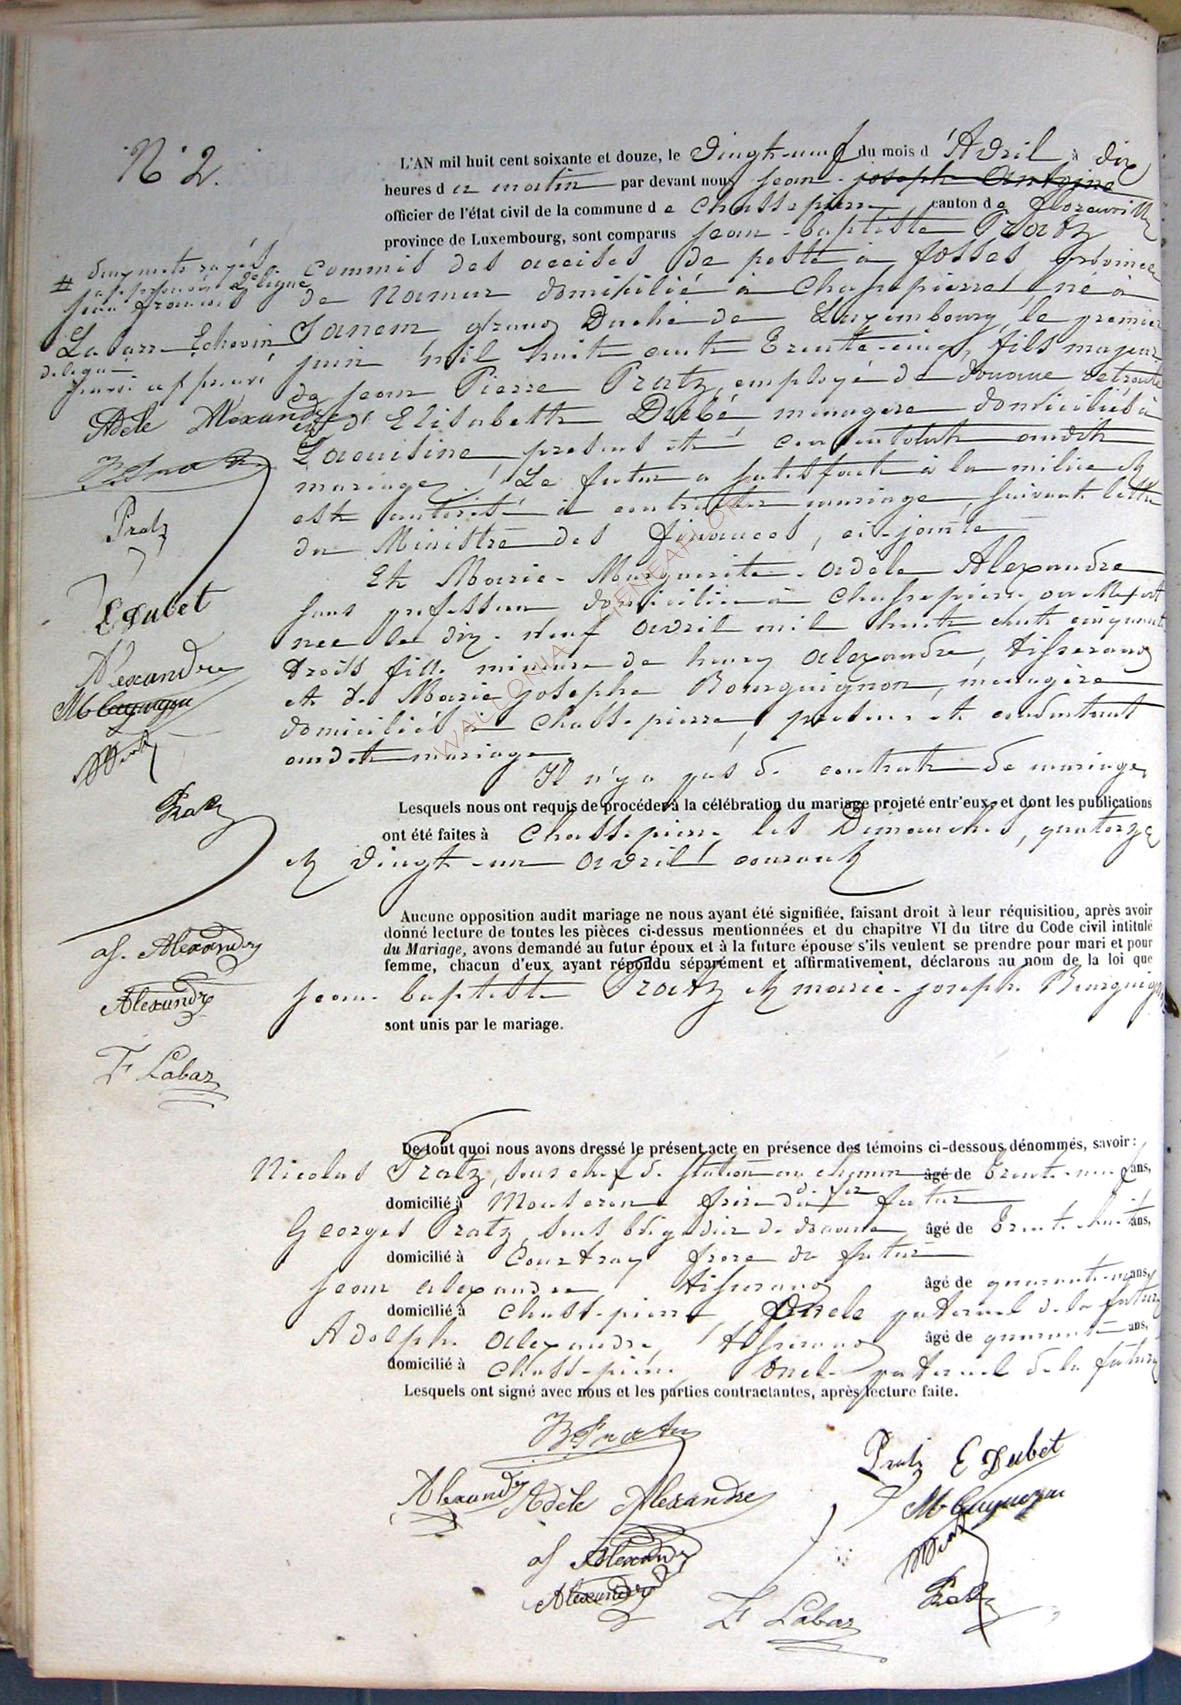 N° 2.
L'AN mil huit cent soixante et douze, le vingt-neuf du mois d'Avril à dix
heures d u matin par devant nous Jean - Joseph Antoine
officier de l'état civil de la commune d e Chassepierre canton d e Florenville
province de Luxembourg, sont comparus Jean-Baptiste Pratz
commis des accises de poste à fosses province
de Namur domicilié à Chassepierre né à
Sanem grand Duché de Luxembourg, le premier
juin mil huit cent trente-cinq, fils majeur
de Jean Pierre Pratz, employé de douane retraité
et d'Elisabeth Dubé ménagère domiciliés à
Lacuisine, présens et consentolnt audit
mariage. Le futur a satisfait à la milice et
est autorisé à contracter mariage, suivant lettre
du Ministre des finances, ci-jointe
Et Marie-Marguerite-Adèle Alexandre
sans profession domiciliée à Chassepierre où elle est
née le dix-neuf avril mil huit cent cinquante
trois fille mineure de henry alexandre, tisserand
et de Marie Josephe Bourguignon, ménagère
domiciliés à Chassepierre, présens et consentant
audit mariage
Il n'y a pas de contrat de mariage
Lesquels nous ont requis de procéder à la célébration du mariage projeté entr'eux, et dont les publications
ont été faites à Chassepierre les Dimanches, quatorze
et vingt-un avril courant
Aucune opposition audit mariage ne nous ayant été signifiée, faisant droit à leur réquisition, après avoir
donné lecture de toutes les pièces ci-dessus mentionnées et du chapitre VI du titre du Code civil intitulé
du Mariage, avons demandé au futur époux et à la future épouse s'ils veulent se prendre pour mari et pour
femme, chacun d'eux ayant répondu séparément et affirmativement, déclarons au nom de la loi que
Jean-baptiste Pratz et marie-josephe Bourguignon
sont unis par le mariage.
De tout quoi nous avons dressé le présent acte en présence des témoins ci-dessous dénommés, savoir :
Nicolas Pratz, sous chef de station au chemin de fer âgé de trente-neuf ans,
domicilié à Mouscron frère du futur
Georges Pratz, sous brigadier de douane âgé de trente-huit ans,
domicilié à Courtray frère du futur
Jean alexandre tisserand âgé de quarante-neuf ans,
domicilié à Chassepierre, Oncle paternel de la future
Adolphe alexandre, tisserand âgé de quarante ans,
domicilié à Chassepierre Oncle paternel de la future
Lesquels ont signé avec nous et les parties contractantes, après lecture faite.
JB Pratz
Pratz E Dubet
Alexandre Adèle Alexandre
af Alexandre
Alexandre
Pratz
F Labar
# deux mots rayés
Jean François
Labarr Echevin
délégué
Adèle Alexandre
JB Pratz
Pratz
E Dubet
Alexandre
Pratz
af. Alexandre
Alexandre
F Labar
WALLONIA GENEAFLORE